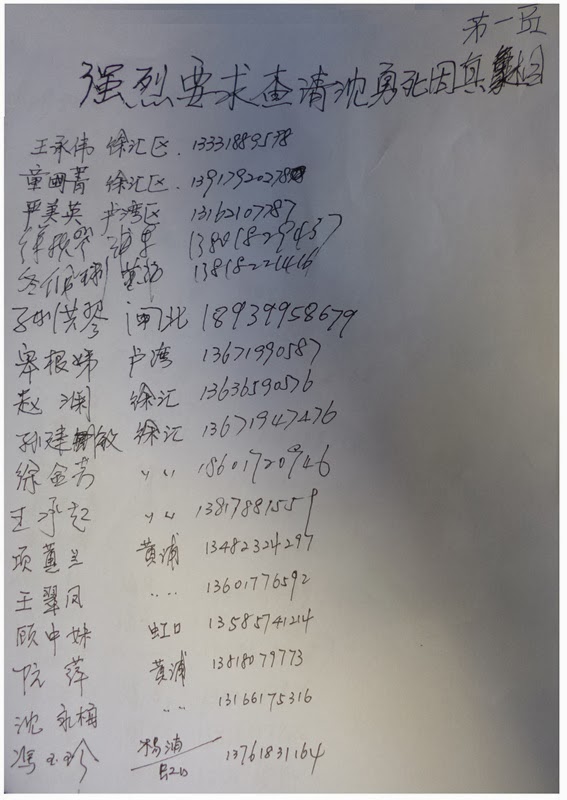 第一页
强烈要求查清沈勇死因真相
王承伟 徐汇区. 13331889578
童国菁 徐汇区. 1391792027
严美英 卢湾区 13162107787
13801829437
13818221416
孙洪琴 闸北 18939958679
辜根娣 卢湾 13671990587
赵 澜 徐汇 13636590576
孙建敏 徐汇 13671947476
徐金芳 〃 〃 18601720946
王承起 〃 〃 13817881559
项蕙兰 黄浦 13482324297
王翠凤 ‥‥ 13601776592
顾中妹 虹口 13585741214
阮 萍 黄浦 13818079773
沈永梅 ‥ 13166175316
冯玉珍 杨浦 13761831164
虹口